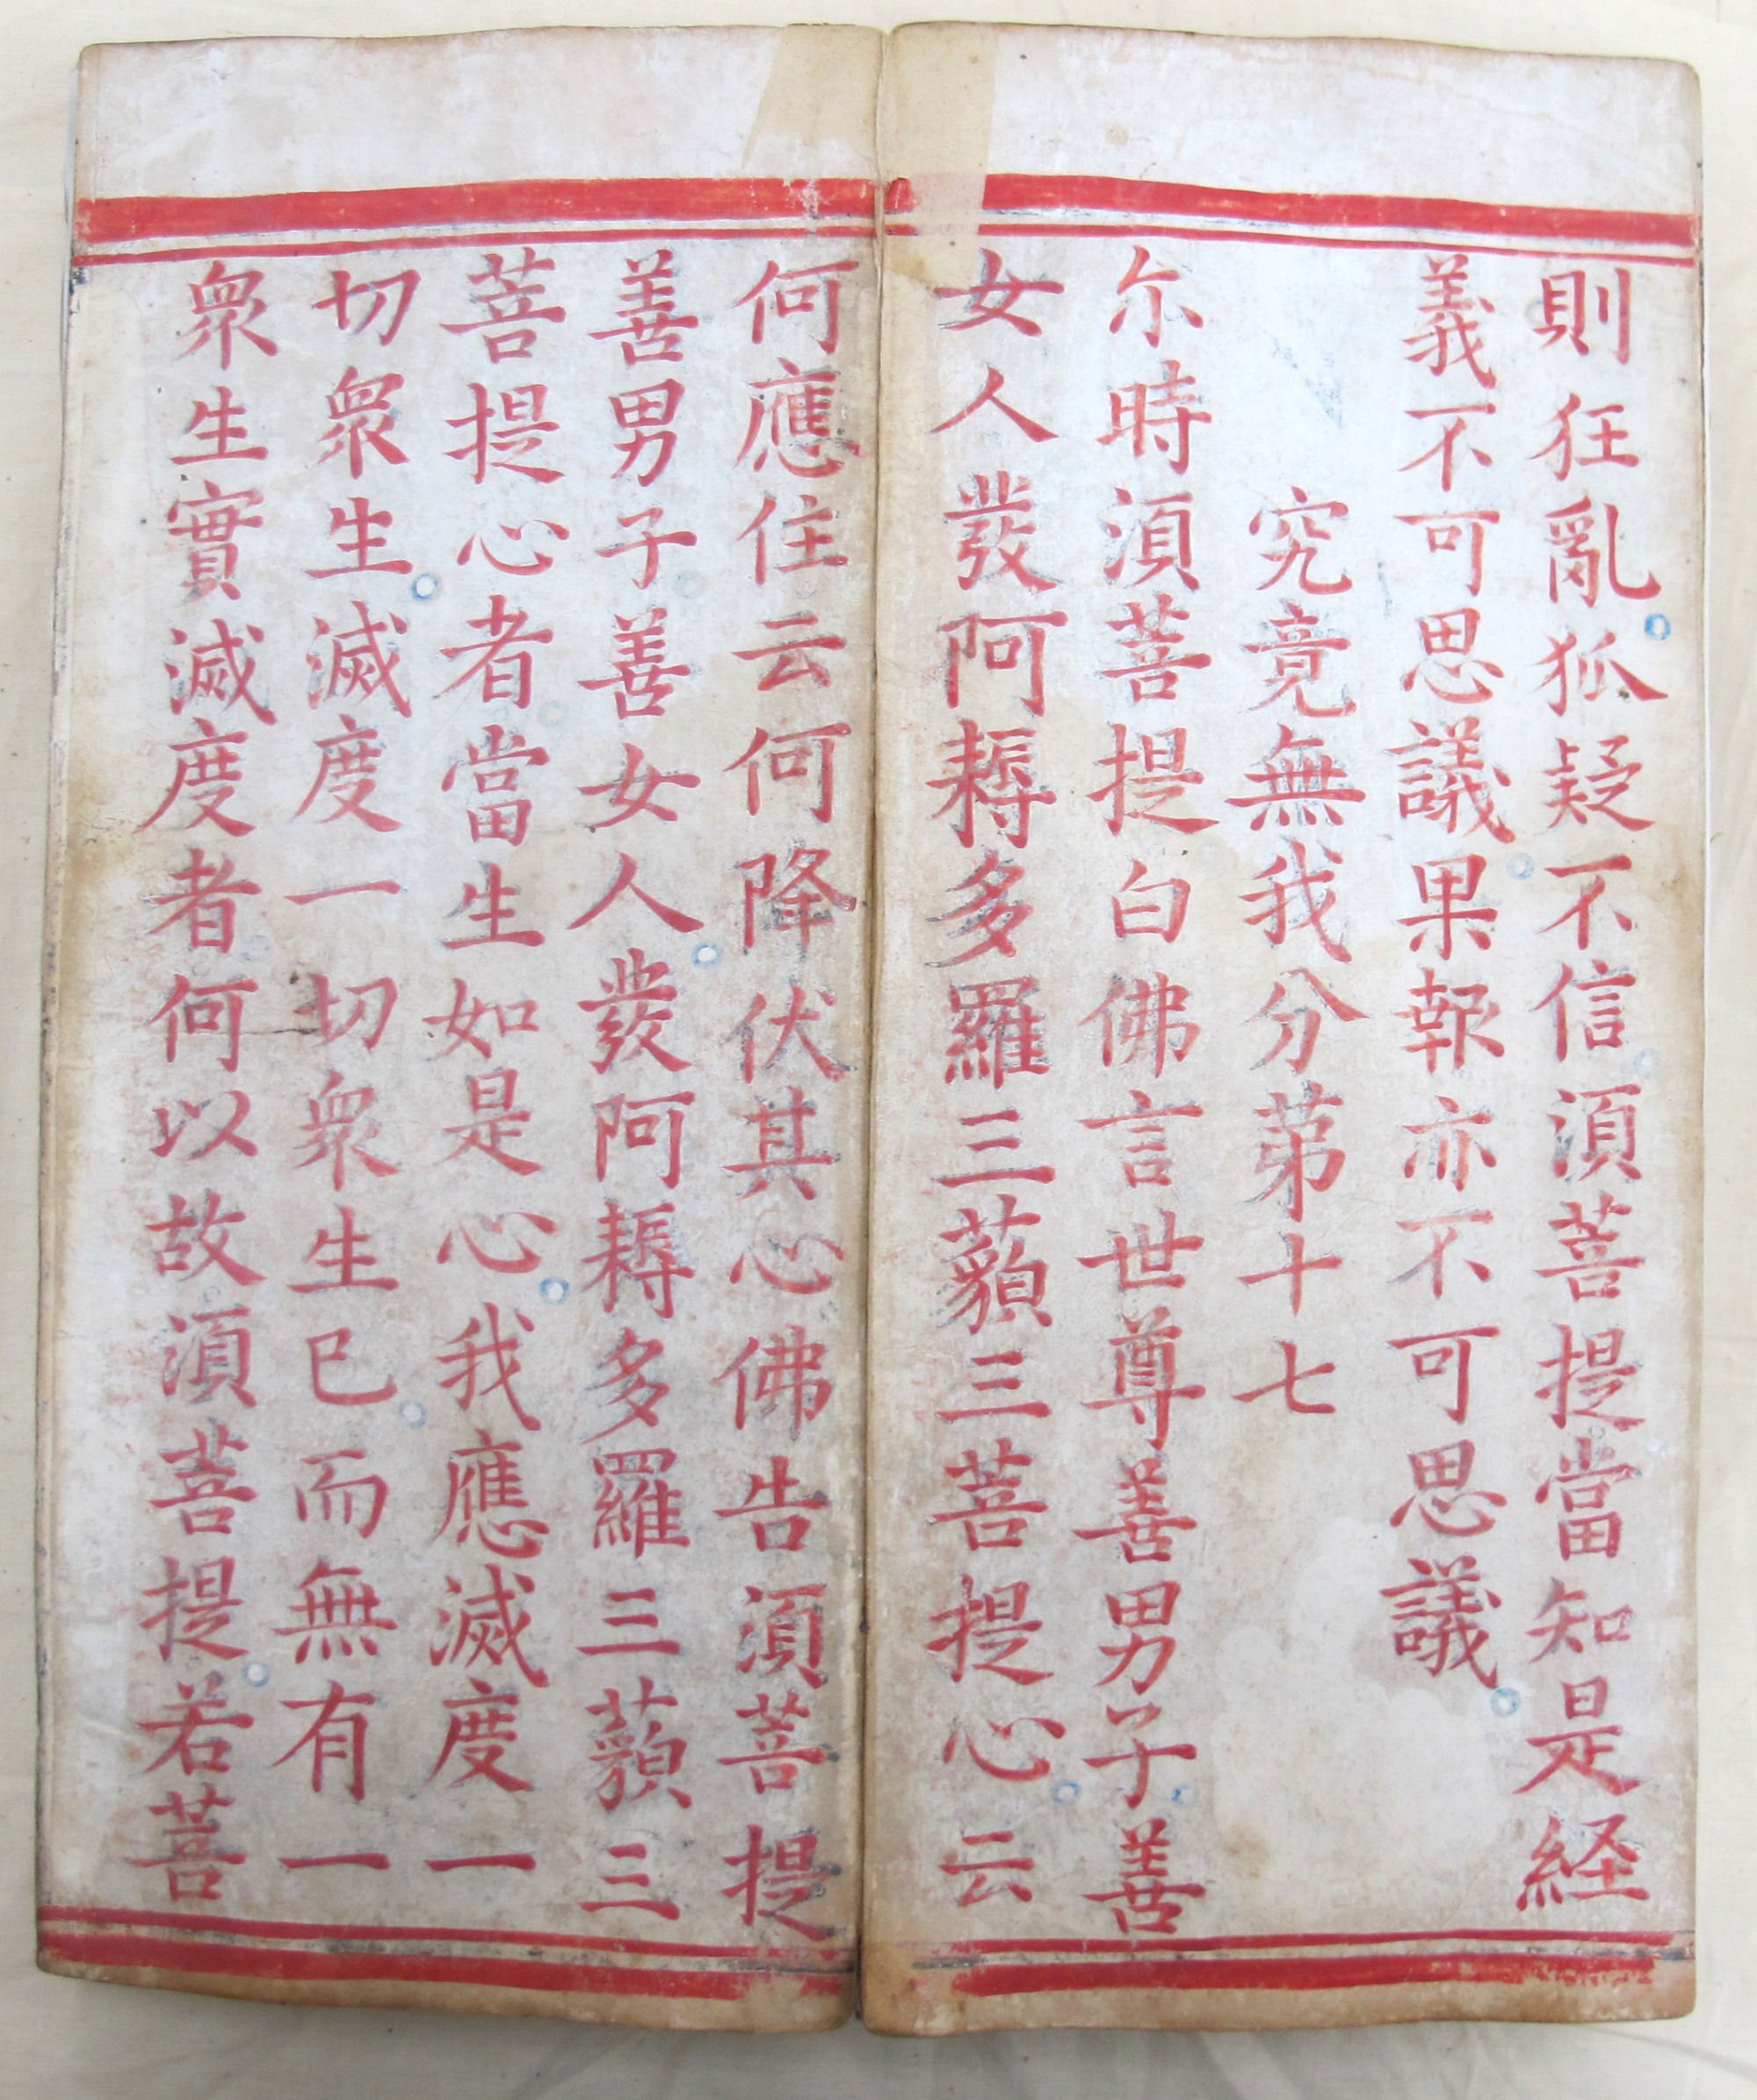 則狂亂狐疑不信湏菩提當知是経
義不可思議果報亦不可思議
究竟無我分苐十七
尓時湏菩提白佛言世尊善男子善
女人發阿耨多羅三藐三菩提心云
何應住云何降伏其心佛告湏菩提
善男子善女人發阿耨多羅三藐三
菩提心者當生如是心我應滅度一
切衆生滅度一切衆生已而無有一
衆生實滅度者何以故湏菩提若菩